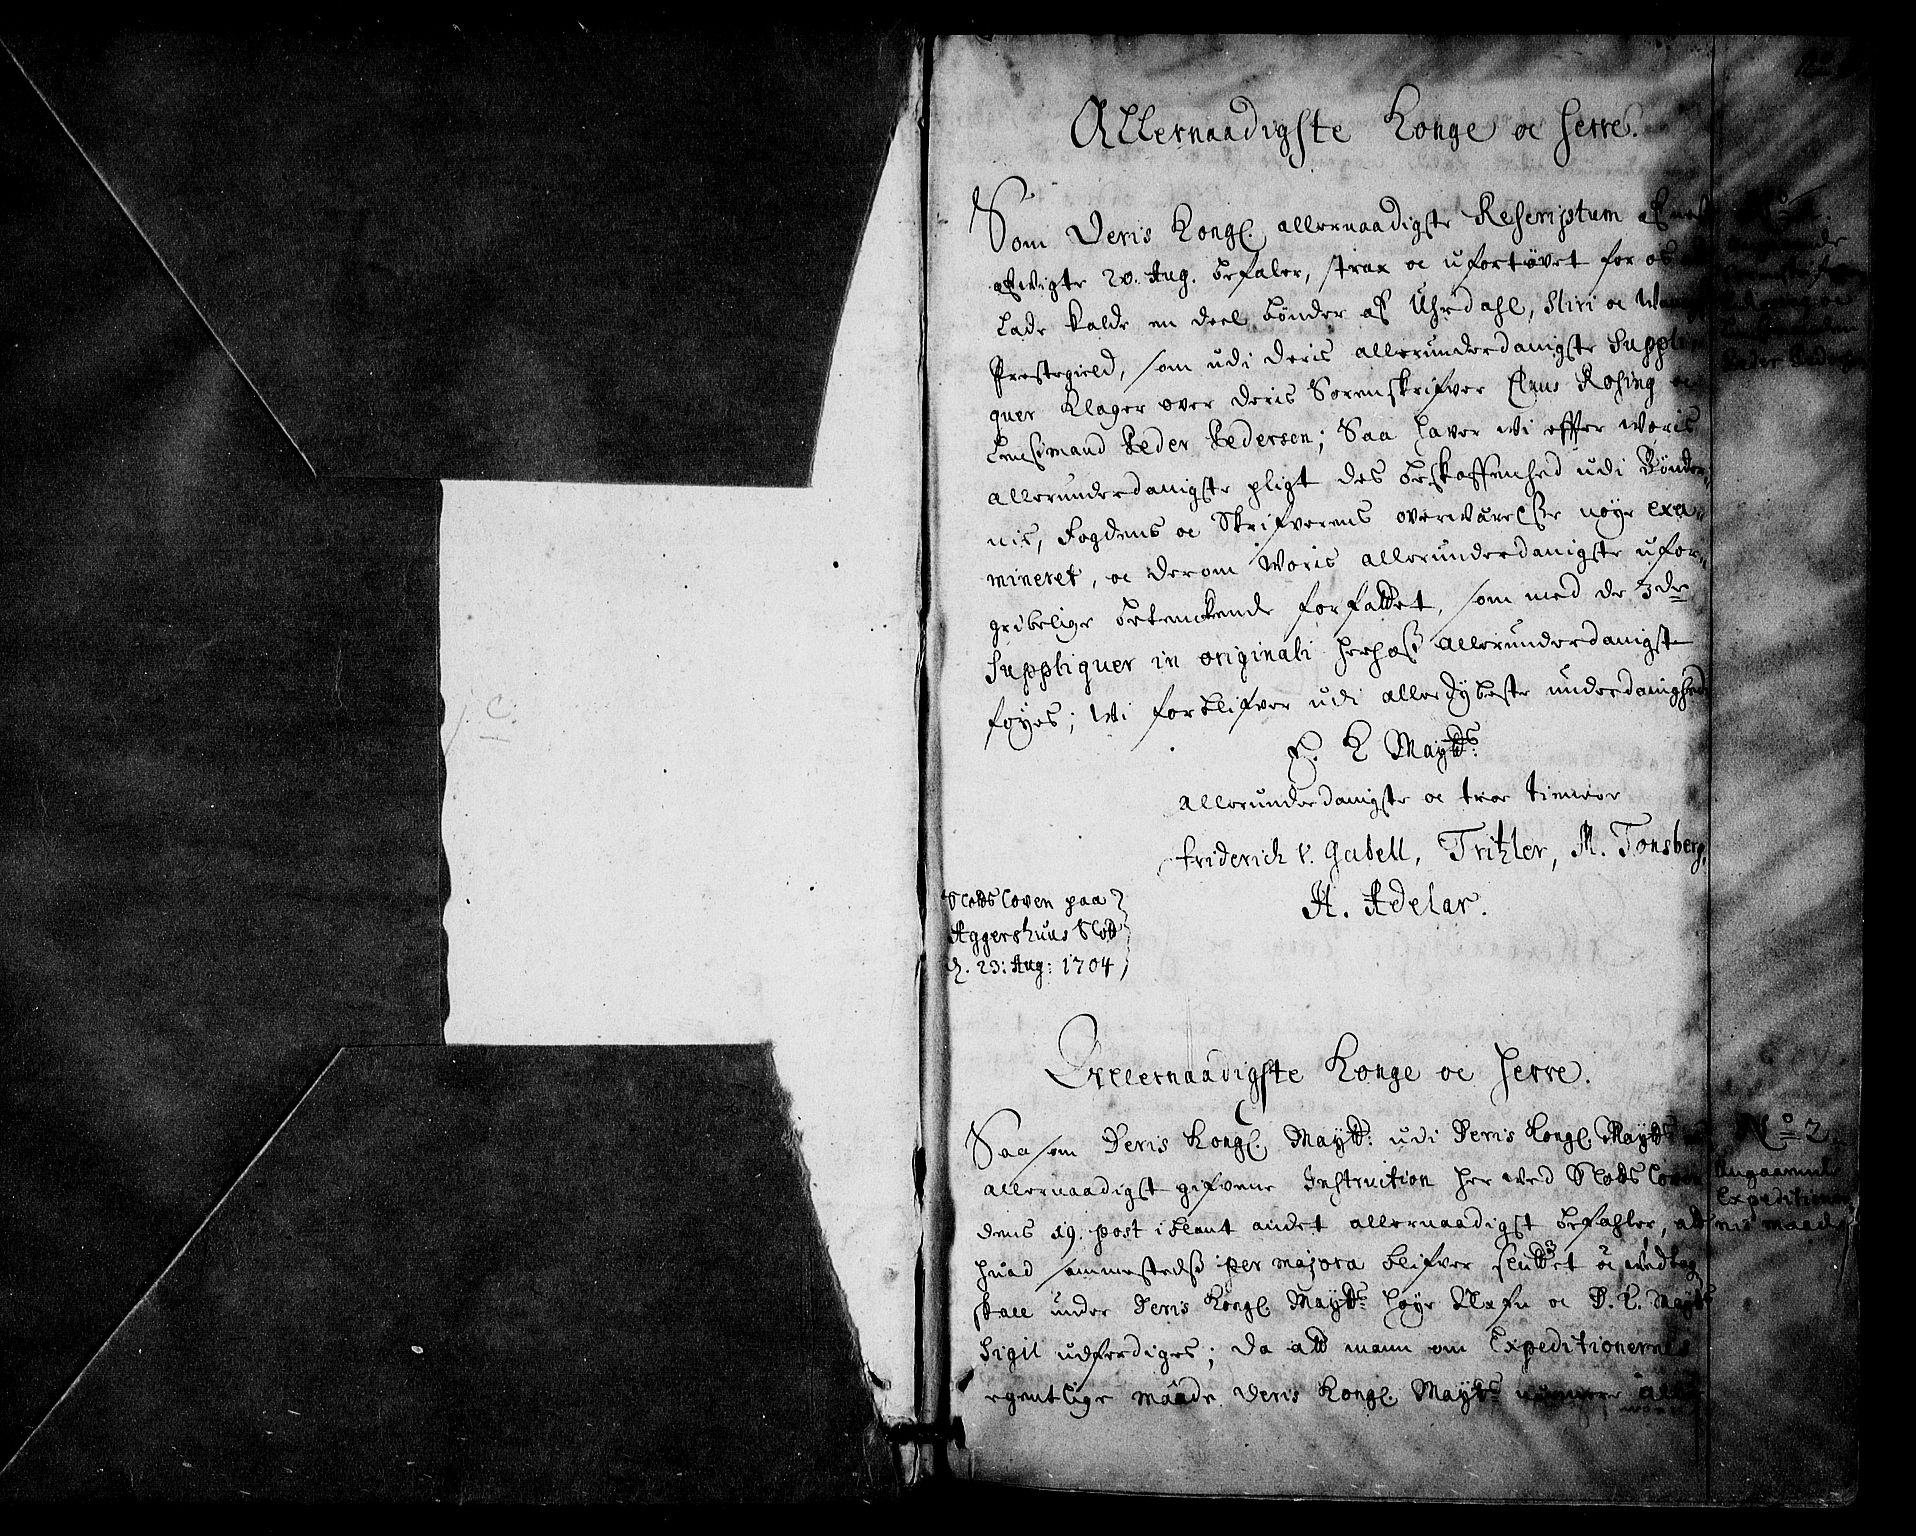 Allernaadigste Konge oc Herre.
Som Deris Kongl. allernaadigste Rescriptum af
afvigte 20. Aug. befaler, strax oc ufortøvet for os
lade kalde en deel bønder af Uhrdahl, Sliri oc
Prestegield, som udi deris allerunderdanigste Suppli
quer klager over deris Sorenskrifver Claus Rosing oc
Lensmand Peder Pedersen; Saa haver wi effter woris
allerunderdanigste pligt des beskaffenhed udi Bønder„
nis, Fogdens oc Skrifverens overwærelsse nøye exa„
mineret, oc derom Woris allerunderdanigste ufor„
gribelige betenckende forfattet, som med de 3de
Suppliquer in originali herhos allerunderdanigst
føyes; Wi forblifver udi allerdybeste underdanighed
E. K Maytts:
allerunderdanigste oc troe tienere
Friderich v. Gabell, Tritzler, M. Tonsberg,
H. Adelar.
Slotsloven paa
Aggershuus Slott
d. 23: Aug: 1704
No 1.
Peder Pedersen
Allernaadigste Konge oc Herre.
Saa som Deris Kongl. Maytt: udi Deris Kongl. Maytts
allernaadigst gifvene Instruction her wed Slotsloven
dens 19. post iblant andet allernaadigst befahler, att
huad sammestedss per majora blifver sluttet oc vedtag
skall under Deris Kongl. Maytts høye Nafn oc D. K. Maytts
Sigil udferdiges; da att mann om Expeditionernes
egentlige maade Deris Kongl. Maytts
No 2.
Angaaende
Expeditioner
nis maade